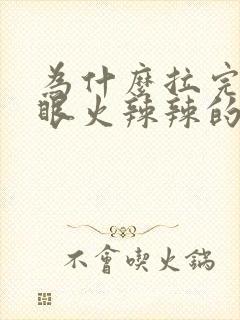 為什麼拉完
眼火辣辣的
不會喫火鍋